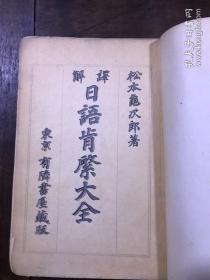 松本龜次郎著
譯解
日語肯綮大全
東京 有隣書屋藏版